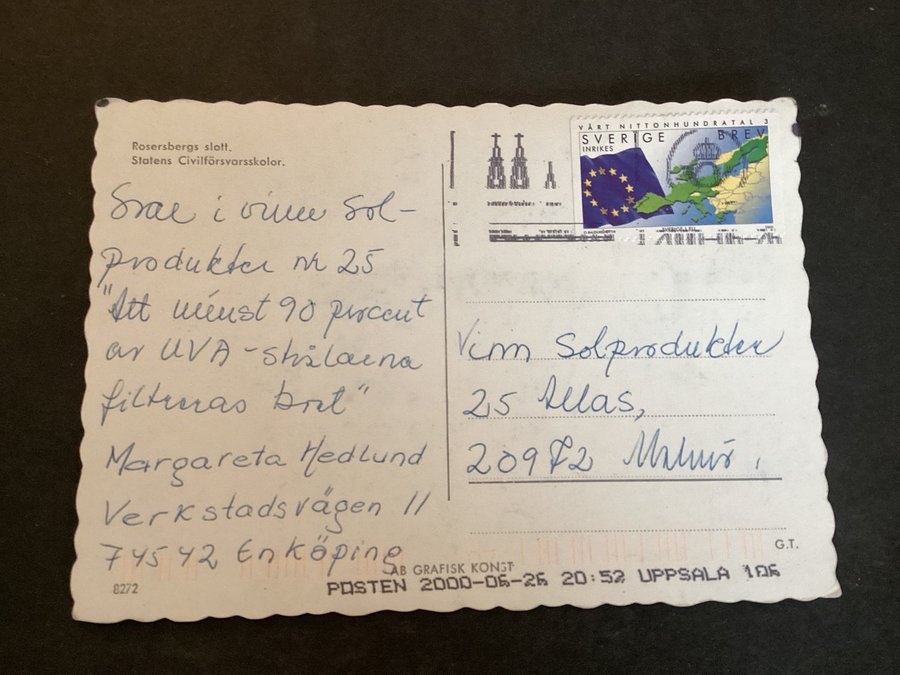 Rosersbergs slott.
Statens Civilförsvarsskolor.
Svar i vinn sol-
produkter nr 25
"Att minst 90 procent
av UVA-strålarna
filtreras bort"
Margareta Hedlund
Verkstadsvägen 11
74542 Enköping
8272
VÅRT NITTONHUNDRATAL 3
SVERIGE BREV
INRIKES
Vinn Solprodukter
25 Allas,
20972 Malmö.
G.T.
AB GRAFISK KONST
POSTEN 2000-06-26 20:52 UPPSALA 106